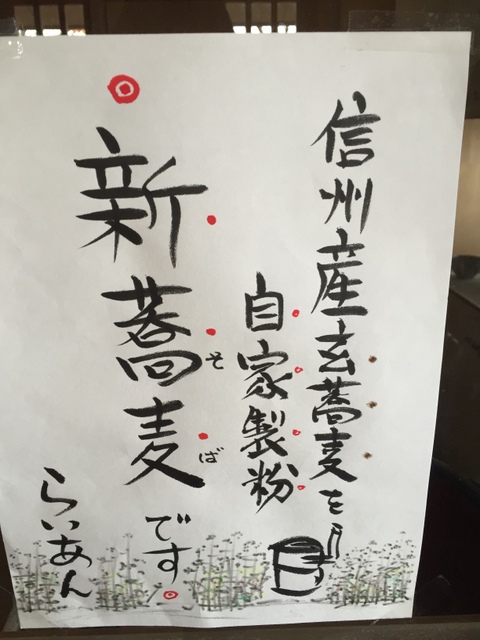 信州産玄蕎麦を
自家製粉
◎新蕎麦です。
そば
らいあん